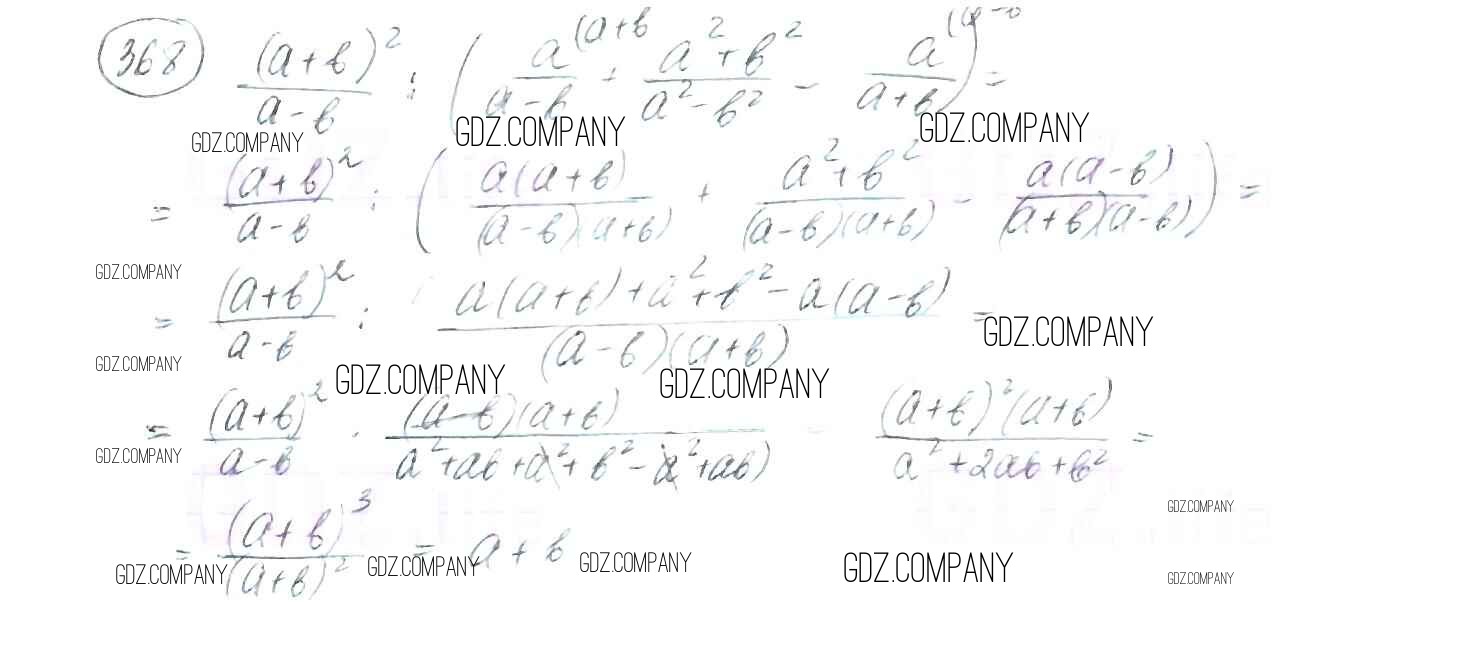 368 (a+b)²/(a-b) : (a^(a+b/(a-b) + (a²+b²)/(a²-b²) - a^(a-b/(a+b)) =
GDZ.COMPANY GDZ.COMPANY GDZ.COMPANY
= (a+b)²/(a-b) : (a(a+b)/((a-b)(a+b)) + (a²+b²)/((a-b)(a+b)) - a(a-b)/((a+b)(a-b))) =
GDZ.COMPANY
= (a+b)²/(a-b) : (a(a+b)+a²+b²-a(a-b))/((a-b)(a+b)) =
GDZ.COMPANY
GDZ.COMPANY GDZ.COMPANY GDZ.COMPANY
= (a+b)²/(a-b) · (a-b)(a+b)/(a²+ab+a²+b²-a²+ab) = (a+b)²(a+b)/(a²+2ab+b²) =
GDZ.COMPANY
GDZ.COMPANY
= (a+b)³/(a+b)² = a+b
GDZ.COMPANY GDZ.COMPANY GDZ.COMPANY GDZ.COMPANY GDZ.COMPANY